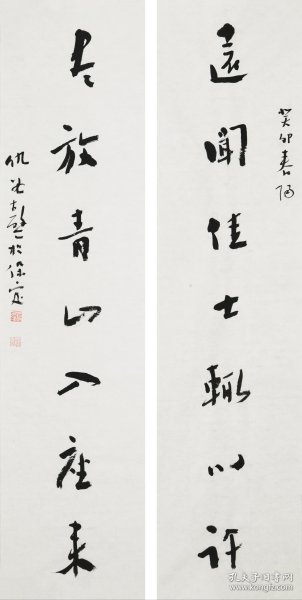 癸卯春陽
遠聞佳士輒心許
尽放青山入座来
仇 於保定
孔夫子旧书网
www.kongfz.com